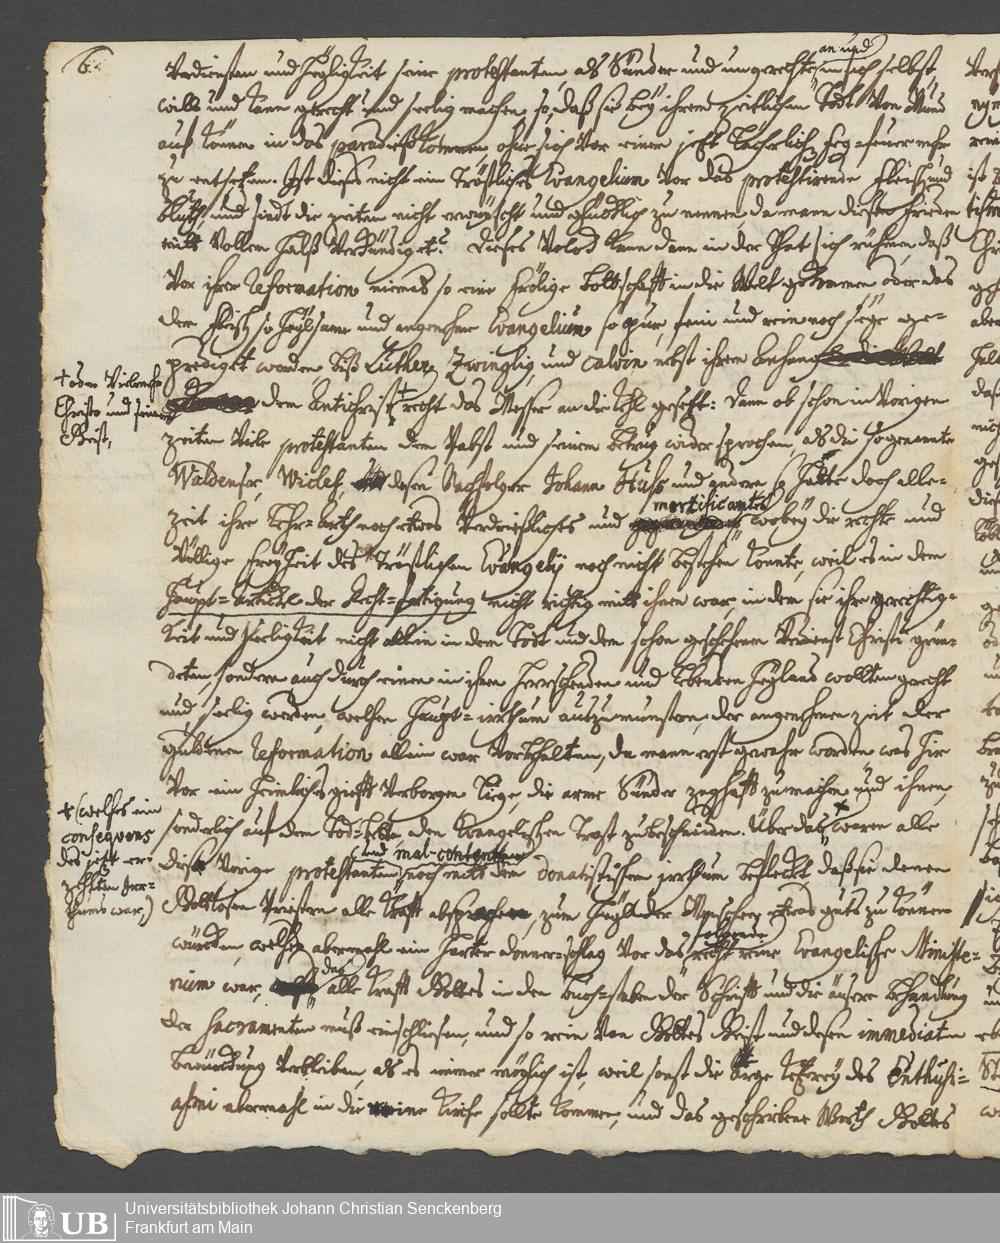 6.
Verdiensten und Heyligkeit seine protestanten als Sünder und ungerechte an und in sich selbst,
will und kann gerecht und seelig machen, so, daß sie bey ihrem zeitlichen Todt von Mund
auf können in das paradieß kommen ohne sich vor einem jetzt lächerlich Feg-feuer mehr
zu entsetzen. Ist dieses nicht ein Tröstliches Evangelium vor das protestirende Fleisch und
Bluth, und sindt die zeiten nicht erwünscht und glücklich zu nennen, da mann diesen Frieden
mitt vollem Halß verkündiget? Dieses Volck kann dann in der That sich rühmen, daß
vor ihrer Reformation niemals so eine frölige Bottschafft in die Welt gekommen oder das
dem Fleisch so heylsame und angenehme Evangelium so pur, fein und rein noch seye ge-
prediget worden, biß Luther, Zwinglig und Calvin nebst ihrem Anhang
dem Antichrist † recht das Messer an die Kehl gesetzt: Dann ob schon in Vorigen
† oder Vielmehr
Christo und seinem
Geist,
zeiten Viele protestanten dem Pabst und seinem Betrug widersprochen, als die sogenannte
Waldenser, Wiclef, dessen Nachfolger Johann Huss und andere so hatte doch alle-
zeit ihre Lehr-Arth noch etwas Verdrießliches und mortificantes wobey die rechte und
Völlige Freyheit des Tröstlichen Evangelij noch nicht bestehen konnte, weil es in dem
Haupt-Articul der Recht-fertigung nicht richtig mitt ihnen war, in dem sie ihre gerechtig-
keit und Seeligkeit nicht allein in dem Todt und dem schon geschehenen Verdienst Christi grün-
deten, sondern auch durch einen in ihnen herrschenden und lebenden Heyland wollten gerecht
und seelig werden, welchen Haupt-irrthum auszumunstern, der angenehmen zeit der
güldenen Reformation allein war Vorbehalten, da mann erst gewahr worden was hier
Vor ein heimliches gifft Verborgen liege, die arme Sünder zaghafft zu machen und ihnen,
sonderlich auf dem Tod-bette den Evangelischen Trost zu beschneiden. Über das * waren alle
* (welches ein
consequens
des jetzt er-
zehlten Irr-
thums war,)
diese Vorige protestanten (und mal-contenten) noch mitt dem Donatistischen irrthum befleckt, daß sie denen
Gottlosen Priestern alle Krafft absprachen, zum Heyl der Menschen etwas guts zu können
würcken, welches abermahl ein harter donner-schlag Vor das folgende recht reine Evangelische Ministe-
rium war, das alle Krafft Gottes in den Buch-staben der Schrifft und die äusere Behandlung
der Sacramenten muß einschliesen, und so rein von Gottes Geist und dessen immediaten
bewürckung Verbleiben, als es immer möglich ist, weil sonst die arge Ketzerey des Enthusi-
asmi abermahl in die reine Kirche sollte kommen, und das geschriebene Worth Gottes
UB
Universitätsbibliothek Johann Christian Senckenberg
Frankfurt am Main